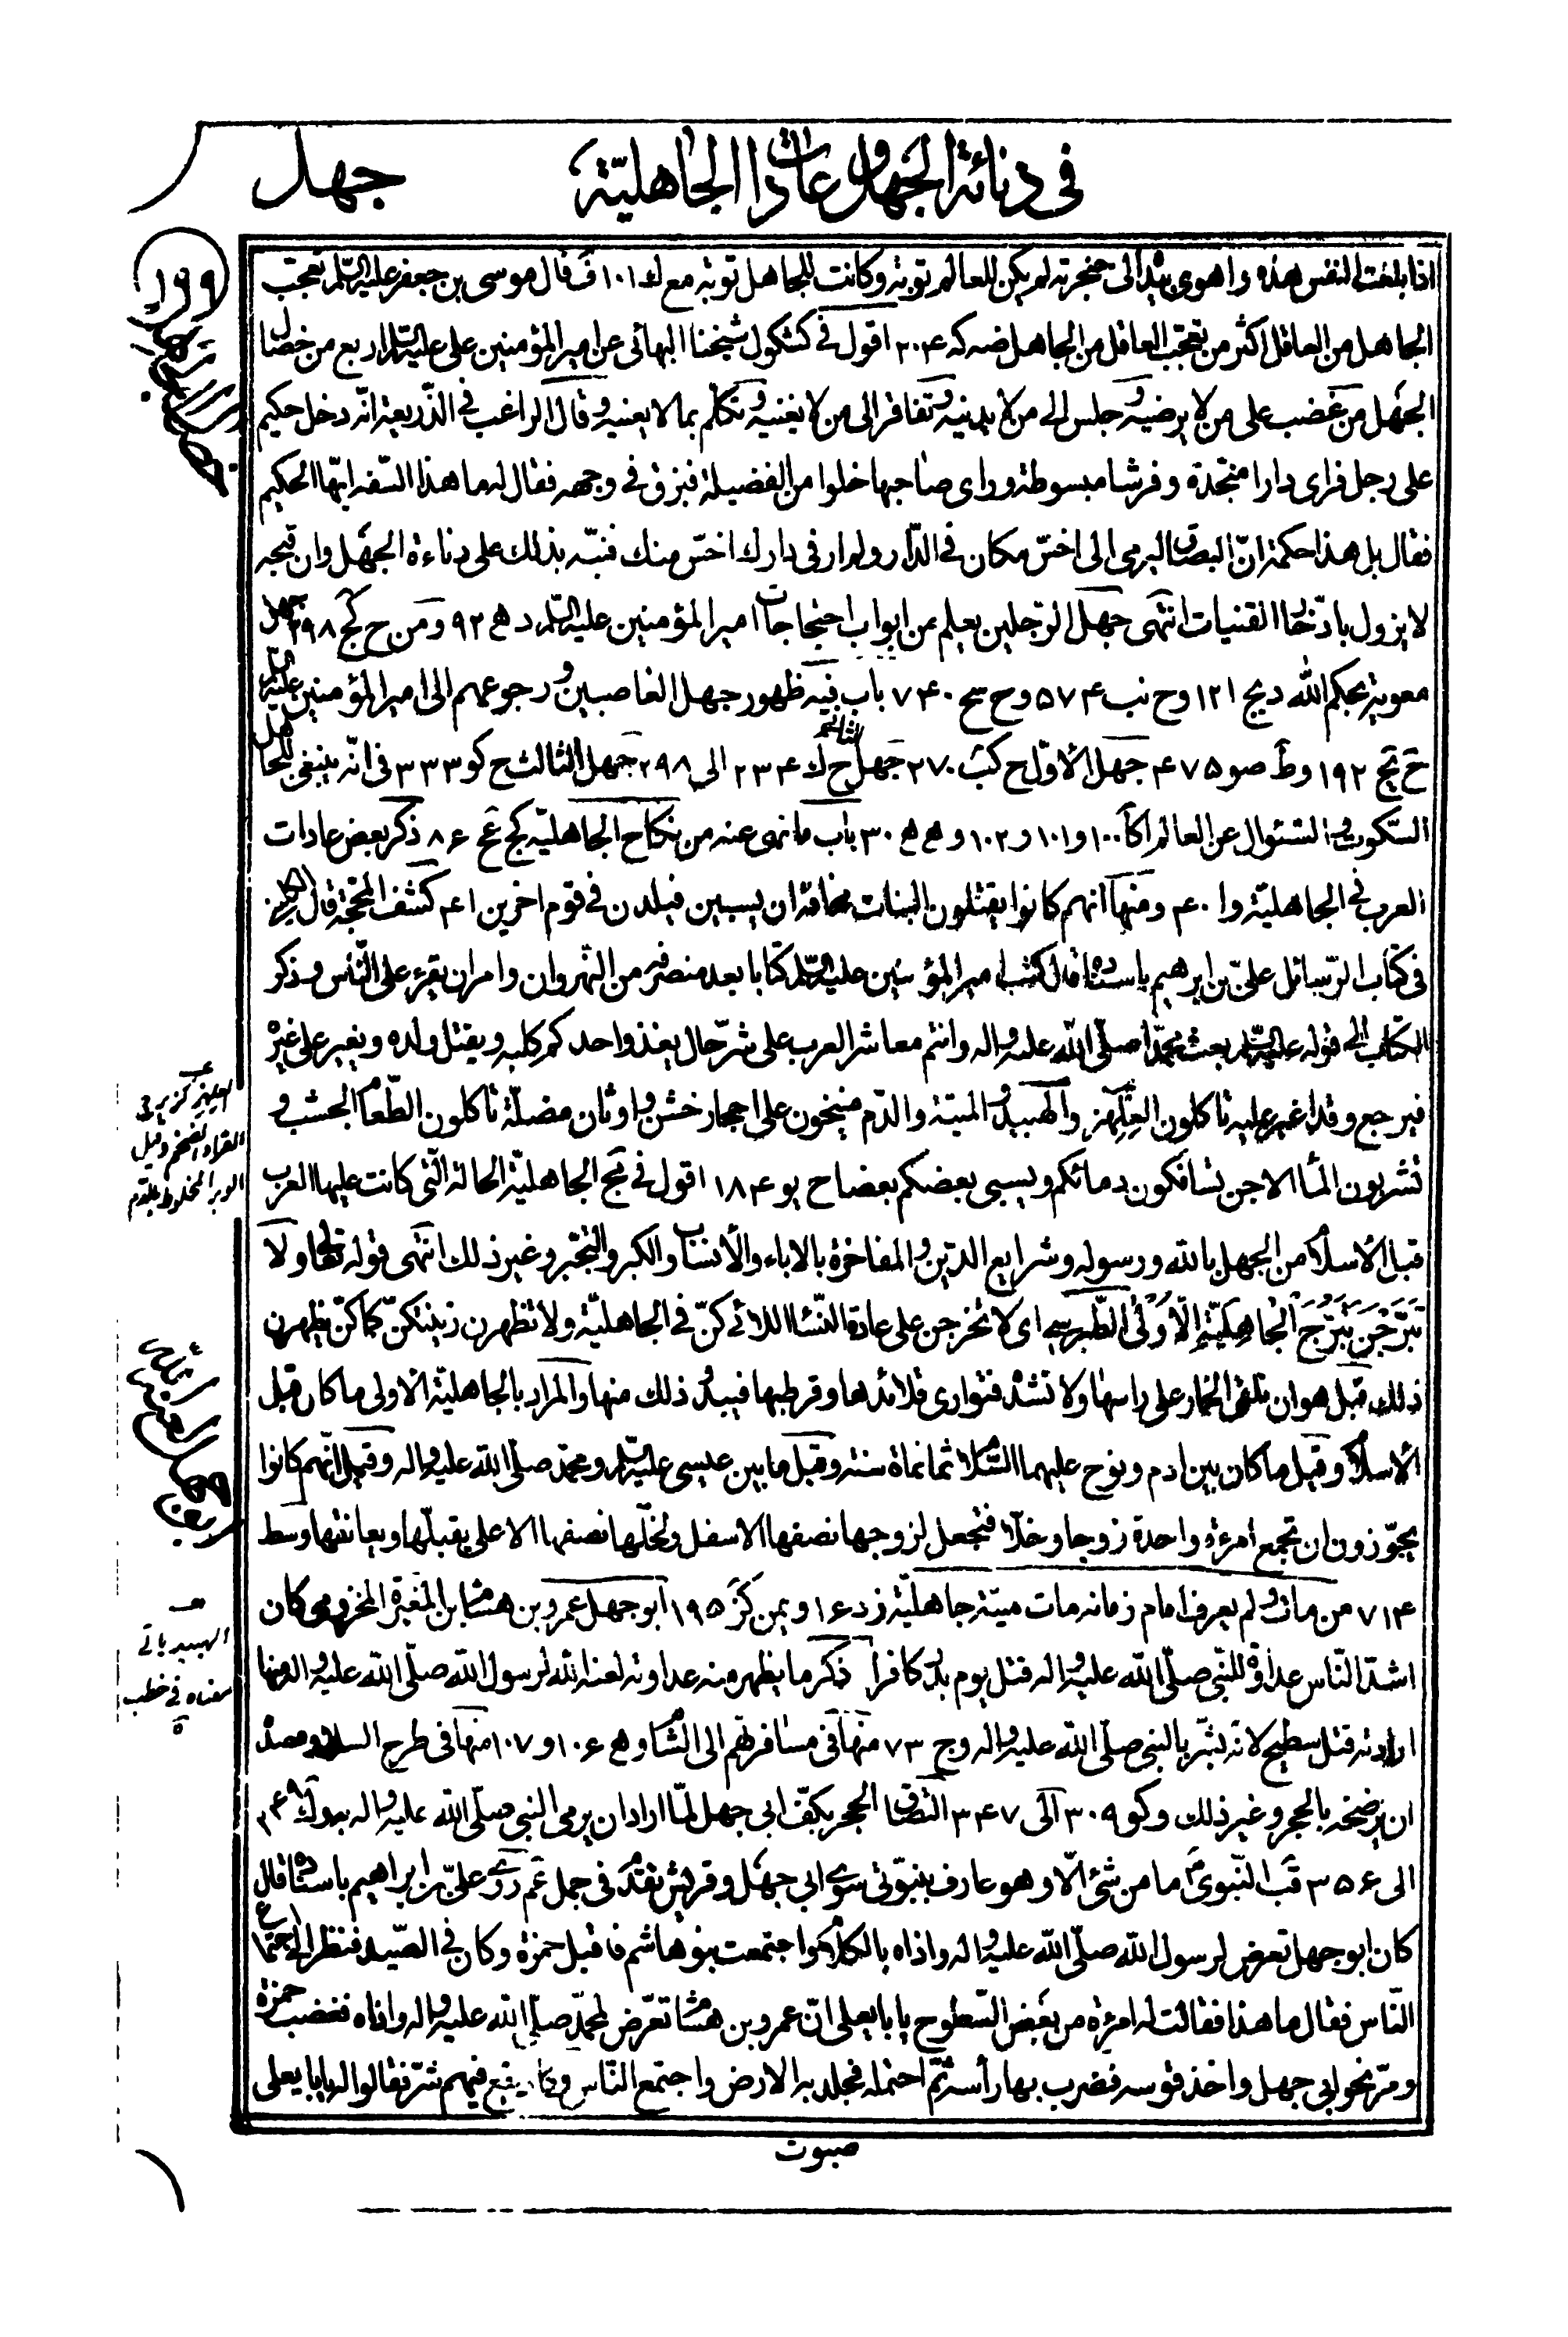 فى دنائة الجهل وعادات الجاهليّة
جهل
١٩٩
اذا بلغت النفس هذه واهوى بيده الى حنجرته لم يكن للعالم توبة وكانت للجاهل توبة مع ك ١٠١ ف قال موسى بن جعفر عليه السّلم تعجّب
الجاهل من العاقل اكثر من تعجّب العاقل من الجاهل ضه كه ٢٠۴ اقول فى كشكول شيخنا البهائى عن امير المؤمنين على عليه السّلم اربع من خصال
الجهل من غضب على من لا يرضيه وجلس الى من لا يدنيه وتفاقر الى من لا يغنيه وتكلّم بما لا يعنيه وقال الراغب فى الذّريعة انّه دخل حكيم
على رجل فراى دارا منجّدة وفرشا مبسوطة وراى صاحبها خلوا من الفضيلة فبزق فى وجهه فقال له ما هذا السّفه ايّها الحكيم
فقال بل هذا حكمة انّ البصاق اليرمى الى اخسّ مكان فى الدّار ولم ار فى دارك اخسّ منك فنبّه بذلك على دناءة الجهل وان قبحه
لا يزول بادّخار القنيات انتهى جهل الرّجلين بعلم من ابواب احتجاجات امير المؤمنين عليه السّلم د هع ٩٢ ومن ح كج ٢٩٨ جهل
معوية بحكم الله د يج ١٢١ وح نب ۵٧۴ وح سج ٧۴٠ باب فيه ظهور جهل الغاصبين ورجوعهم الى امير المؤمنين عليه السّلم
ح يج ١٩٢ وط صو ۴٧۵ جهل الاوّل ح كب ٢٧٠ جهل الثانى ح ك ٢٣۴ الى ٢٩٨ جهل الثالث ح كو ٣٣٣ فى انّه ينبغى للجاهل
السّكوت والسّئوال عن العالم ا كا ١٠٠ و ١٠١ و ١٠٢ و هع هع ٣٠ باب ما نهى عنه من نكاح الجاهليّة كج عج ٨۶ ذكر بعض عادات
العرب فى الجاهليّة وا ۴٠ ومنها انهم كانوا يقتلون البنات مخافة ان يسبين فيلدن فى قوم اخرين ۴١ كشف المحجّة قال الكلينى
فى كتاب الرّسائل علىّ بن ابرهيم باسناده قال كتب امير المؤمنين عليه السّلم كتابا بعد منصرفه من النهروان وامر ان يقرء على النّاس وذكر
الكتاب الى قوله عليه السّلم بعث محمّدا صلّى الله عليه واله وانتم معاشر العرب على شرّ حال يغذو احدكم كلبه ويقتل ولده ويغير على غيره
فيرجع وقد اغير عليه تاكلون العلهز والهبيد والميتة والدّم منيخون على احجار خشن واوثان مضلّة تاكلون الطّعام الجشب و
تشربون الماء الاجن تسافكون دمائكم ويسبى بعضكم بعضا ح يو ١٨۴ اقول فى مج الجاهليّة الحالة الّتى كانت عليها العرب
قبل الاسلام من الجهل بالله ورسوله وشرايع الدّين والمفاخرة بالاباء والأنساب والكبر والتجبّر وغير ذلك انتهى قوله تعالى ولا
تَبَرَّجْنَ تَبَرُّجَ الْجاهِلِيَّةِ الْأُولى الطّبرسى اى لا تخرجن على عادة النّساء اللائى كنّ فى الجاهليّة ولا تظهرن زينتكنّ كما كنّ يظهرن
ذلك قيل هو ان تلقى الخمار على راسها ولا تشدّه فتوارى قلائدها وقرطيها فيبدو ذلك منها والمراد بالجاهليّة الاولى ما كان قبل
الاسلام وقيل ما كان بين ادم ونوح عليهما السّلام ثمانمأة سنة وقيل ما بين عيسى عليه السّلم ومحمّد صلّى الله عليه واله وقيل انّهم كانوا
يجوّزون ان تجمع امرءة واحدة زوجا وخلّا فتجعل لزوجها نصفها الاسفل ولخلّها نصفها الاعلى يقبّلها ويعانقها وسط
٧١۴ من مات ولم يعرف امام زمانه مات ميتة جاهليّة ز د ١۶ و يمن كز ١٩۵ ابو جهل عمرو بن هشام ابن المغيرة المخزومى كان
اشدّ النّاس عداوة للنبى صلّى الله عليه واله قتل يوم بدر كافرا ذكر ما يظهر منه عداوته لعنه الله لرسول الله صلّى الله عليه واله منها
ارادته قتل سطيح لانّه بشّر بالنبى صلّى الله عليه واله وج ٧٣ منها فى مسافرتهم الى الشام و هع ١٠۶ و ١٠٧ منها فى طرح السلا وقصده
ان يرضخه بالحجر وغير ذلك وكو ٣٠٩ الى ٣۴٧ التصاق الحجر بكفّ ابى جهل لمّا اراد ان يرمى النبى صلّى الله عليه واله
الى ٣۵۶ قب النّبوىّ ما من شئ الّا وهو عارف بنبوّتى سوى ابى جهل وقريش تقدّم فى جمل عم روى علىّ بن ابراهيم باسناده قال
كان ابو جهل تعرض لرسول الله صلّى الله عليه واله واذاه بالكلام واجتمعت بنو هاشم فاقبل حمزة وكان فى الصّيد فنظر الى اجتماع
النّاس فقال ما هذا فقالت له امرءة من بعض السّطوح يا با يعلى انّ عمرو بن هشام تعرّض لمحمّد صلّى الله عليه واله واذاه فغضب حمزة
ومرّ نحو ابى جهل واخذ قوسه فضرب بها رأسه ثمّ احتمله فجلد به الارض واجتمع النّاس وكاد يقع فيهم شرّ فقالوا له يا با يعلى
صبوت
العلهز كزبرج
القراد الضخم وقيل
الوبر المخلوط بالدم
الهبيد ياتى
معناه فى خطب